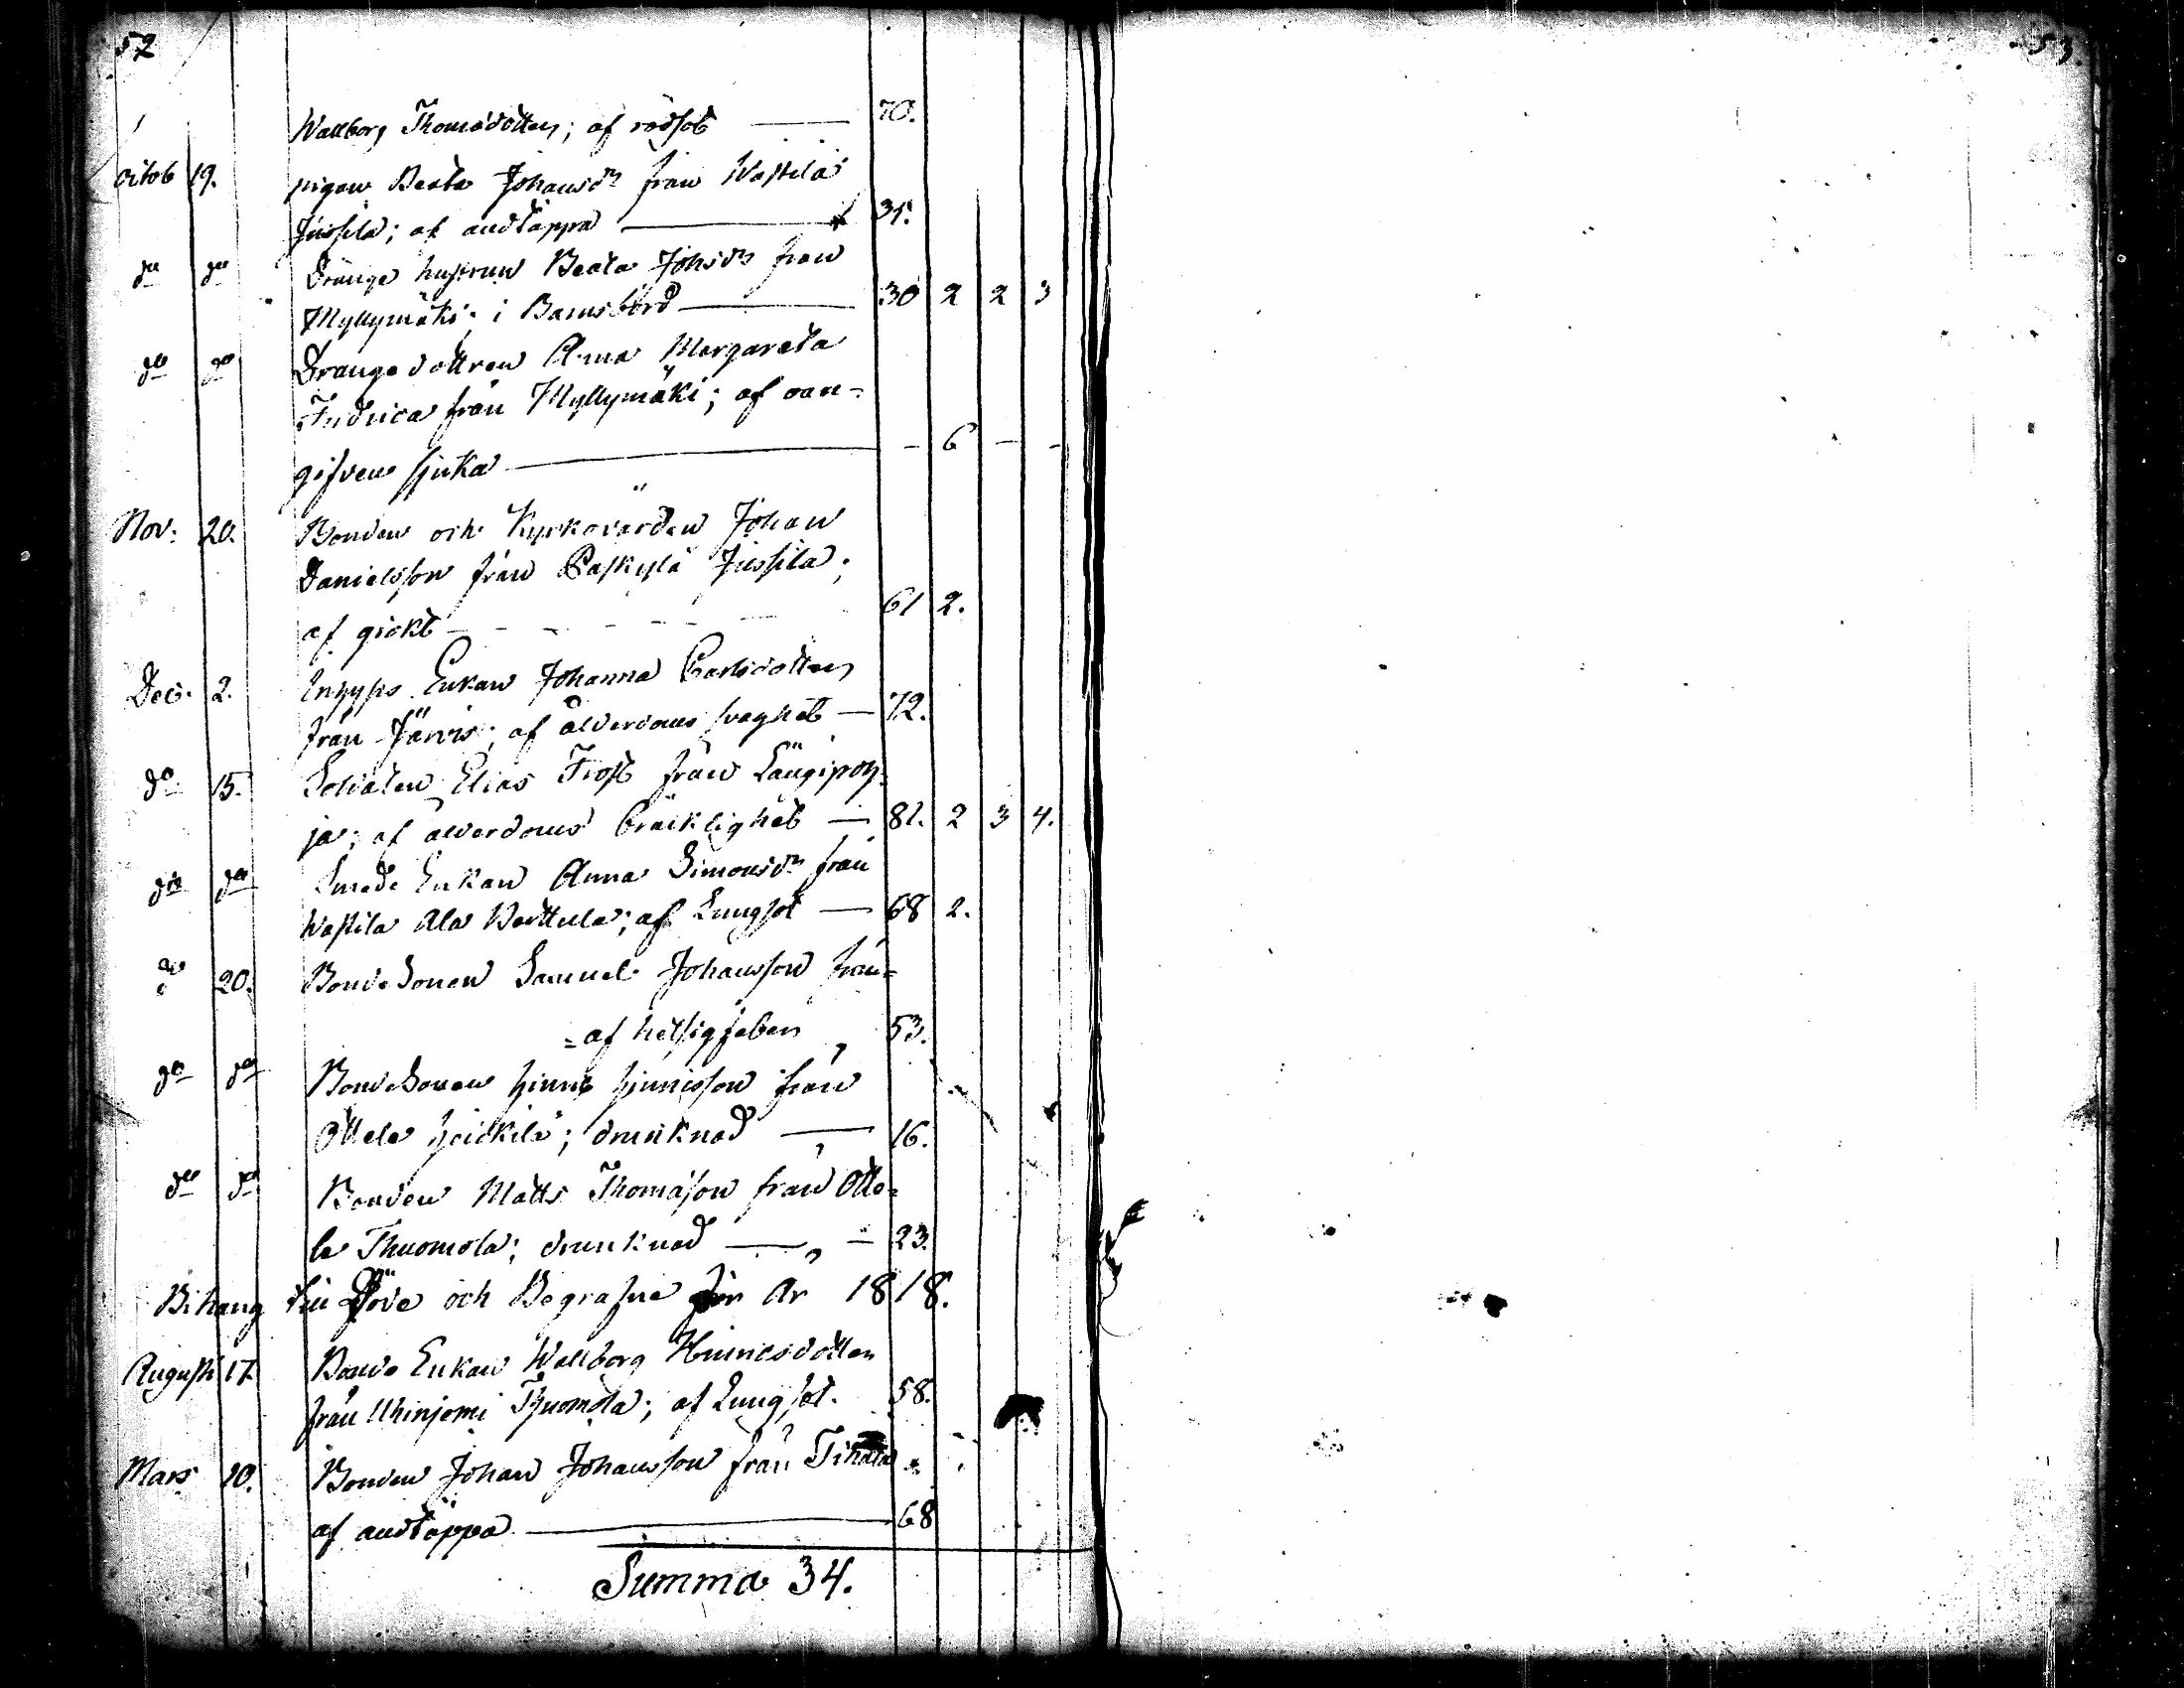 52
53.
Wallborg Thomasdotter; af rödsot — 70.
Octob 19. pigan Beata Johansdr från Wastila
Jussila; af andtäppa — 31.
do do Drängehustrun Beata Johsdr från
Myllymäki; i Barnsbörd — 30 2 2 3
do do Drängedottren Anna Margareta
Fredrica från Myllymäki; af oan=
gifven sjuka — - 6 - -
Nov: 20. Bonden och Kyrkovärden Johan
Danielsson från Paskylä Jussila;
af gickt - - - - - 61 2.
Dec: 2. Inhyses Enkan Johanna Carlsdotter
från Järvis; af ålderdoms svaghet — 72.
do 15. Soldaten Elias Frost från Längipoh=
ja; af ålderdoms bräcklighet — 82. 2 3 4.
do do Smeds Enkan Anna Simonsdr från
Wastila Ala Werttula; af Lungsot — 68 2.
do 20. BondeSonen Samuel Johansson från=
=af hetsigfeber „ 53.
do do BondeSonen Hinric Hinricsson från
Ottela Heickilä; drunknad — 16.
do do Bonden Matts Thomasson från Otte=
la Thuomola; drunknad — „ — 23.
Bihang till Döde och Begrafne för År 1818.
Augusti 17. Bonde Enkan Wallborg Hinricsdotter
från Uhinjomi Thuomola; af Lungsot. 58.
Mars 10. Bonden Johan Johansson från
af andtäppa — 68
Summa 34.